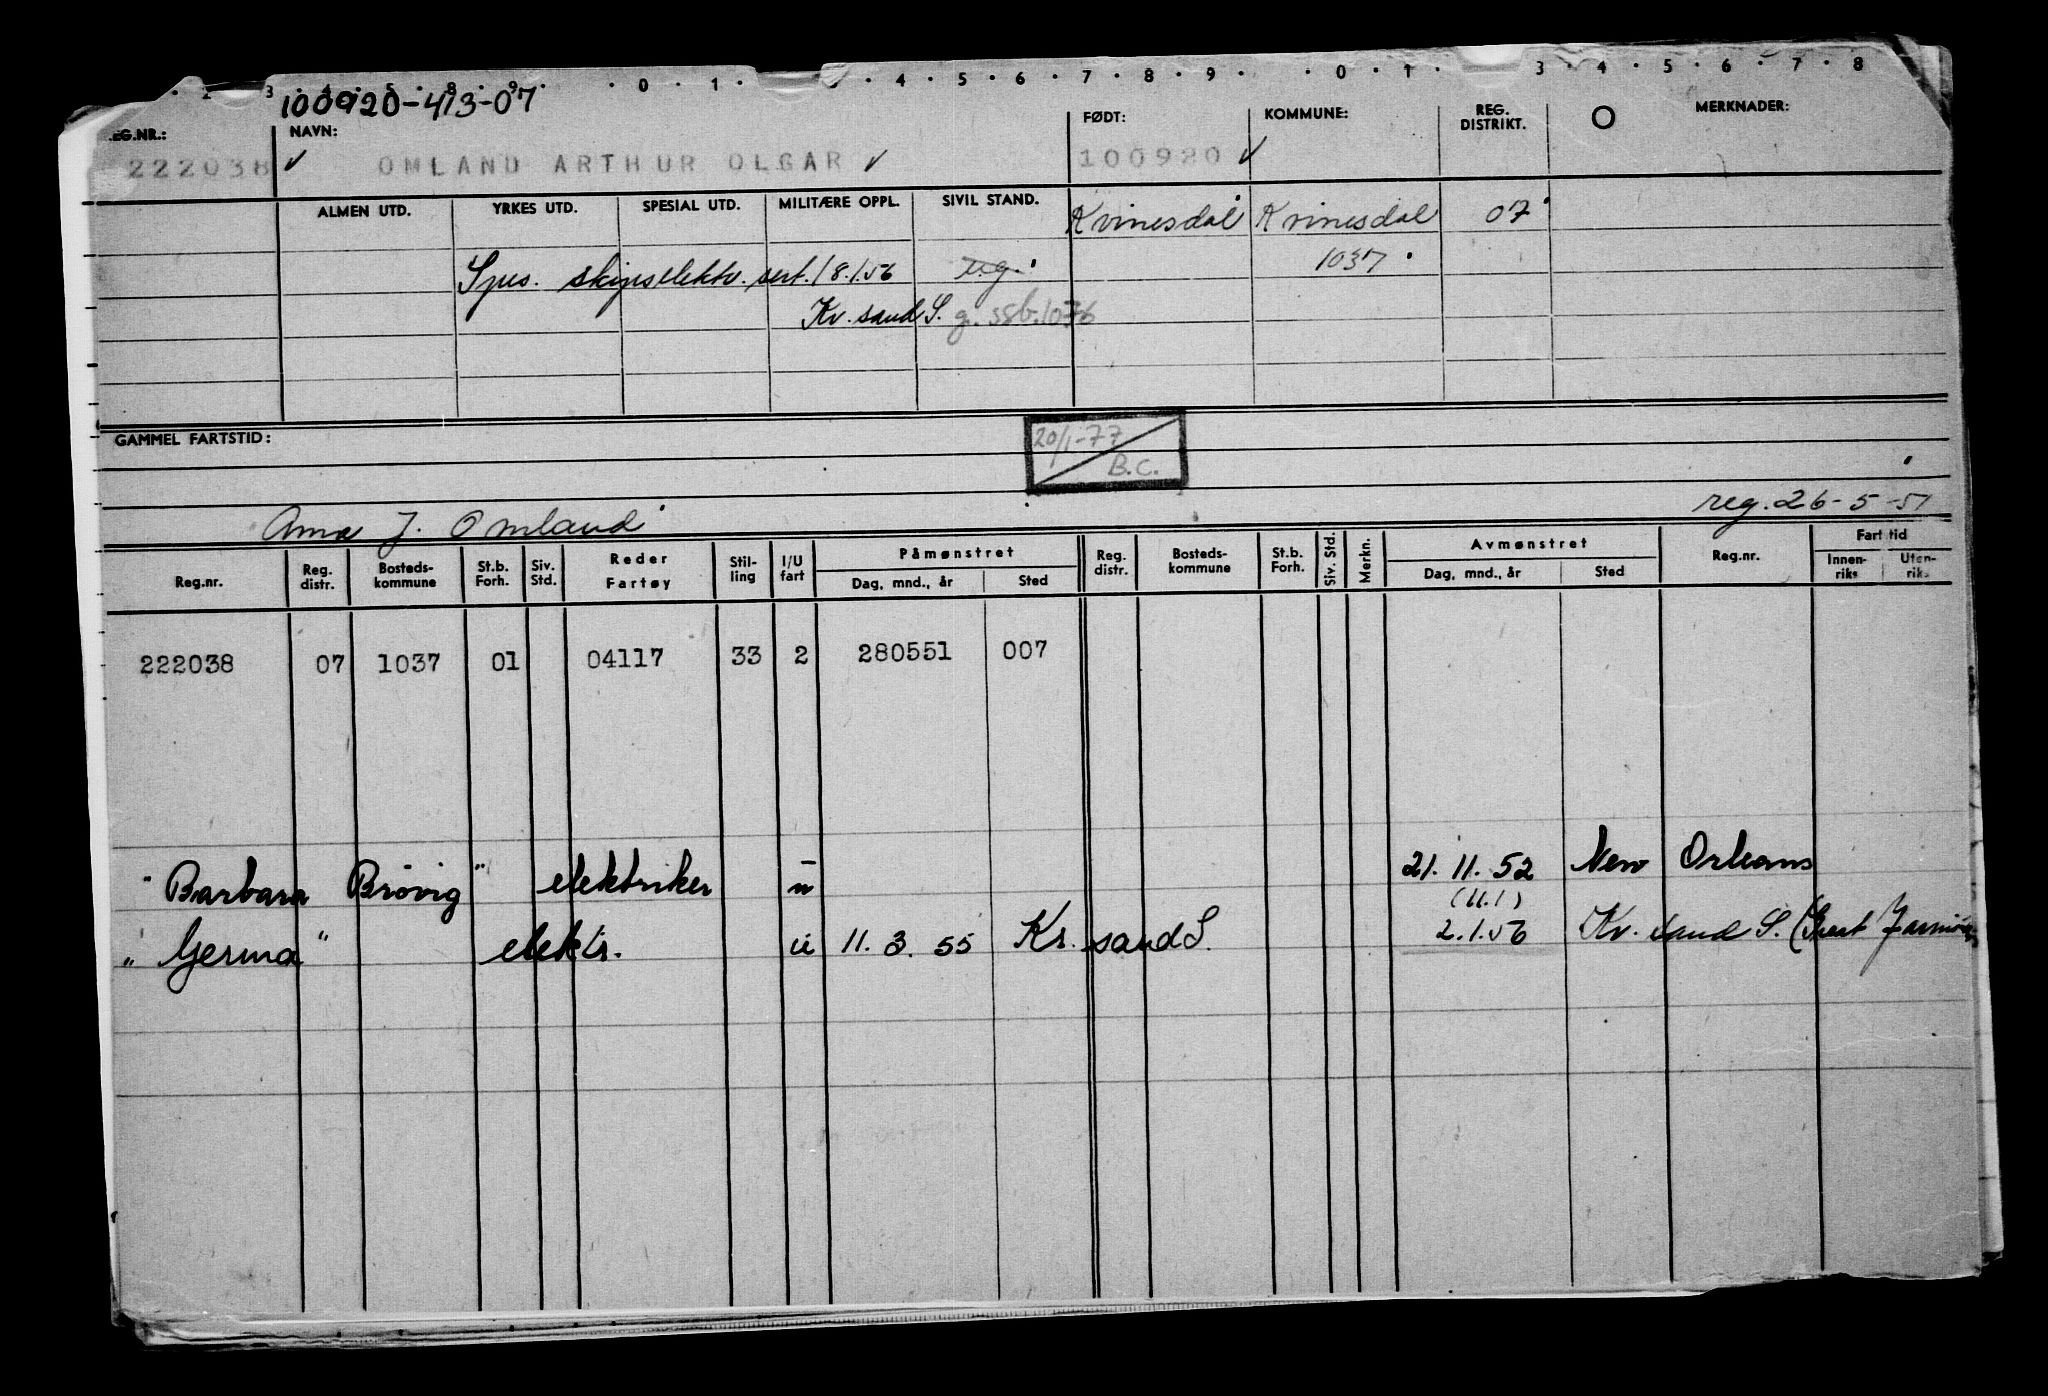 2 3 4 5 8 9 0 1 4 5 6 7 8 9 0 1 3 4 5 6 7 8
100920-413-07
EG.NR.: NAVN: FØDT: KOMMUNE: REG. DISTRIKT. O MERKNADER:
222038 ✓ OMLAND ARTHUR OLGAR ✓ 100920 ✓
ALMEN UTD. YRKES UTD. SPESIAL UTD. MILITÆRE OPPL. SIVIL STAND. Kvinesdal Kvinesdal 07
Spes. skipselektr. sert. 18.1.56 ug. 1037
Kr. sand S. g. ssb. 1076
GAMMEL FARTSTID: 20/1-77
B.C.
reg. 26-5-51
Anna J. Omland
Reg.nr. Reg. distr. Bosteds-kommune St.b. Forh. Siv. Std. Reder Fartøy Stil-ling I/U fart Påmønstret Dag, mnd., år Sted Reg. distr. Bosteds-kommune St.b. Forh. Siv. Std. Merkn. Avmønstret Dag, mnd., år Sted Reg.nr. Fart tid Innen-riks Uten-riks
222038 07 1037 01 04117 33 2 280551 007
"Barbara Brøvig" elektriker u 21.11.52 New Orleans
(11.1)
"Germa" elektr. u 11.3.55 Kr. sand S. 2.1.56 Kr. sand S.